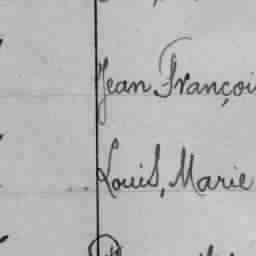 Jean Françoi
Louis, Marie